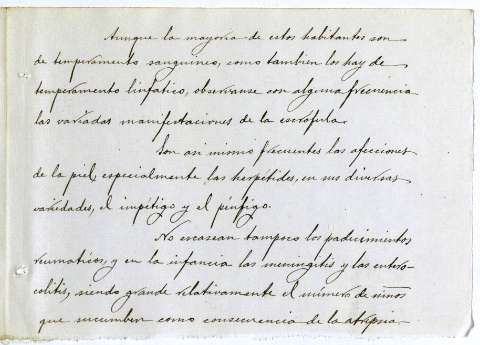 Aunque la mayoria de estos habitantes son
de temperamento sanguineo, como tambien los hay de
temperamento linfatico, observanse con alguna frecuencia
las variadas manifestaciones de la escrófula.
Son asi mismo frecuentes las afecciones
de la piel, especialmente las herpétides, en sus diversas
variedades, el impétigo y el pénfigo.
No escasean tampoco los padecimientos
reumaticos, y en la infancia las meningitis y las entero-
colitis, siendo grande relativamente el número de niños
que sucumben como consecuencia de la atrepsia.